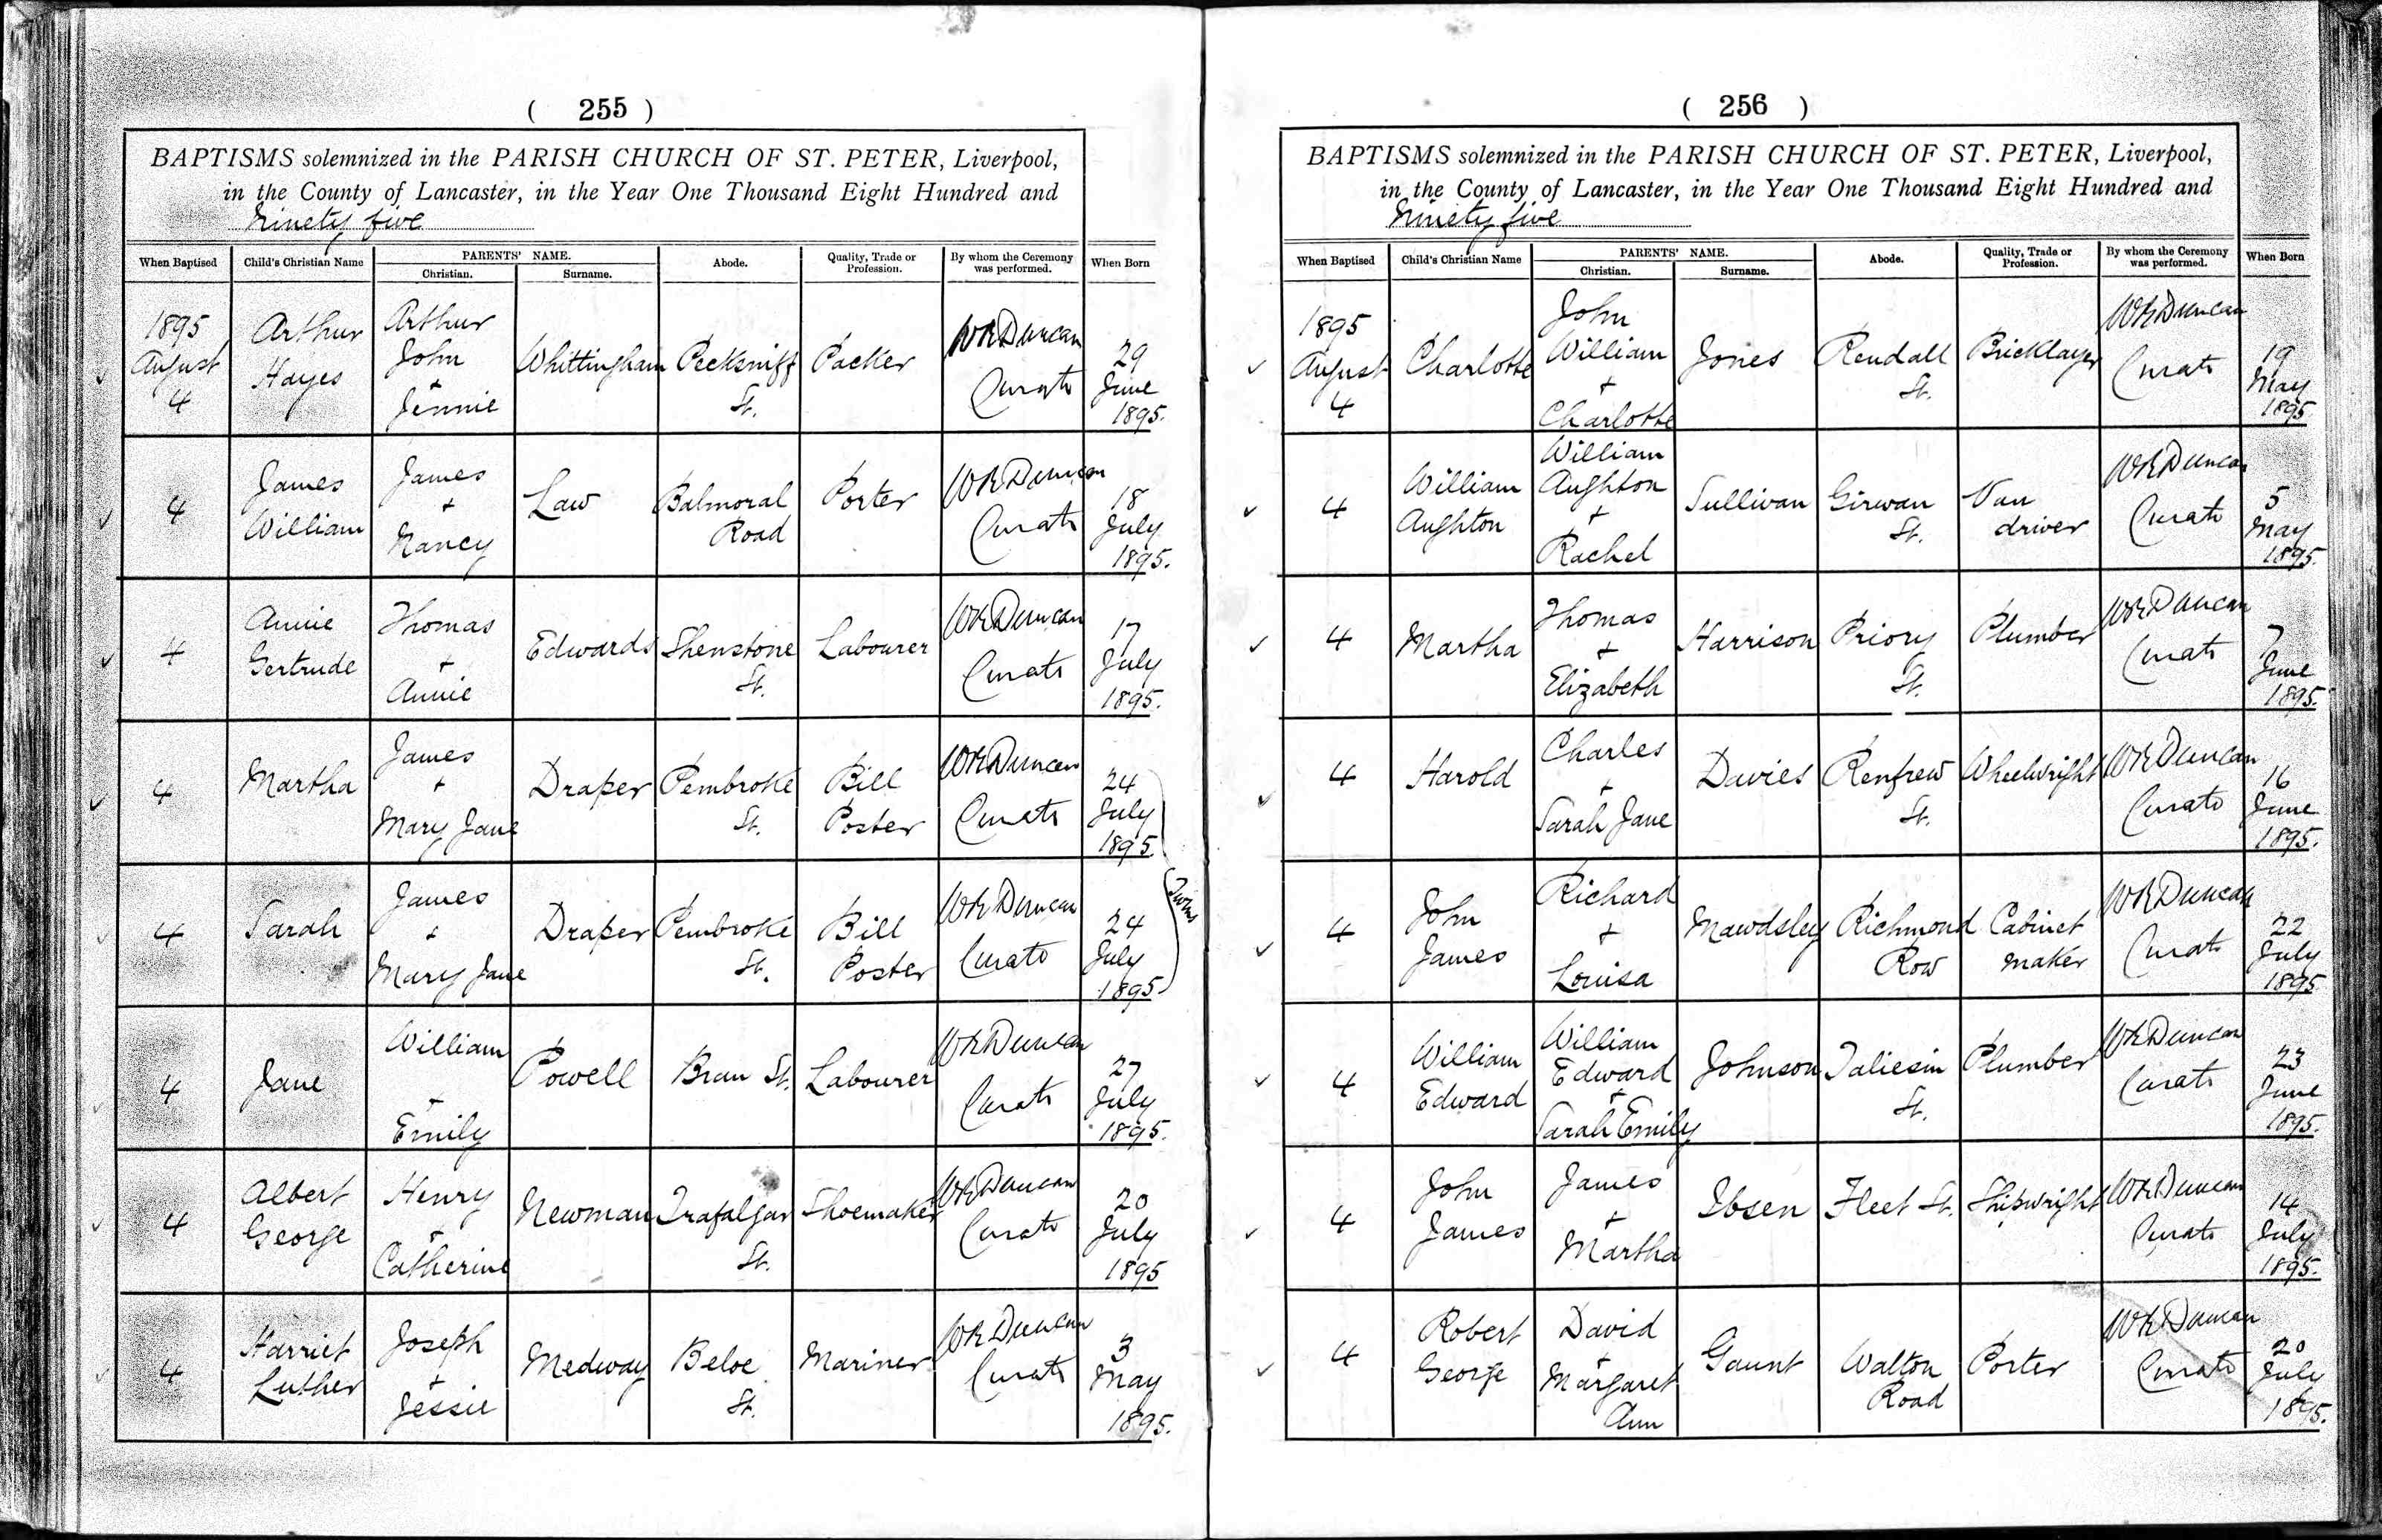 ( 255 )
BAPTISMS solemnized in the PARISH CHURCH OF ST. PETER, Liverpool,
in the County of Lancaster, in the Year One Thousand Eight Hundred and
Ninety five
When Baptised Child's Christian Name PARENTS' NAME. Christian. Surname. Abode. Quality, Trade or Profession. By whom the Ceremony was performed. When Born
1895 August 4 Arthur Hayes Arthur John + Jennie Whittingham Pecksniff St. Packer WR Duncan Curate 29 June 1895.
4 James William James + Nancy Law Balmoral Road Porter WR Duncan Curate 18 July 1895.
4 Annie Gertrude Thomas + Annie Edwards Shenstone St. Labourer WR Duncan Curate 17 July 1895.
4 Martha James + Mary Jane Draper Pembroke St. Bill Poster WR Duncan Curate 24 July 1895
4 Sarah James + Mary Jane Draper Pembroke St. Bill Poster WR Duncan Curate 24 July 1895 Twins
4 Jane William + Emily Powell Bran St. Labourer WR Duncan Curate 27 July 1895.
4 Albert George Henry + Catherine Newman Trafalgar St. Shoemaker WR Duncan Curate 20 July 1895
4 Harriet Luther Joseph + Jessie Medway Beloe St. Mariner WR Duncan Curate 3 May 1895.
( 256 )
BAPTISMS solemnized in the PARISH CHURCH OF ST. PETER, Liverpool,
in the County of Lancaster, in the Year One Thousand Eight Hundred and
Ninety five
When Baptised Child's Christian Name PARENTS' NAME. Christian. Surname. Abode. Quality, Trade or Profession. By whom the Ceremony was performed. When Born
1895 August 4 Charlotte John William + Charlotte Jones Rendall St. Bricklayer WR Duncan Curate 19 May 1895
4 William Aughton William Aughton + Rachel Sullivan Girwan St. Van driver WR Duncan Curate 5 May 1895
4 Martha Thomas + Elizabeth Harrison Priory St. Plumber WR Duncan Curate 7 June 1895.
4 Harold Charles + Sarah Jane Davies Renfrew St. Wheelwright WR Duncan Curate 16 June 1895.
4 John James Richard + Louisa Mawdsley Richmond Row Cabinet maker WR Duncan Curate 22 July 1895
4 William Edward William Edward + Sarah Emily Johnson Taliesin St. Plumber WR Duncan Curate 23 June 1895.
4 John James James + Martha Ibsen Fleet St. Shipwright WR Duncan Curate 14 July 1895.
4 Robert George David + Margaret Ann Gaunt Walton Road Porter WR Duncan Curate 20 July 1895.